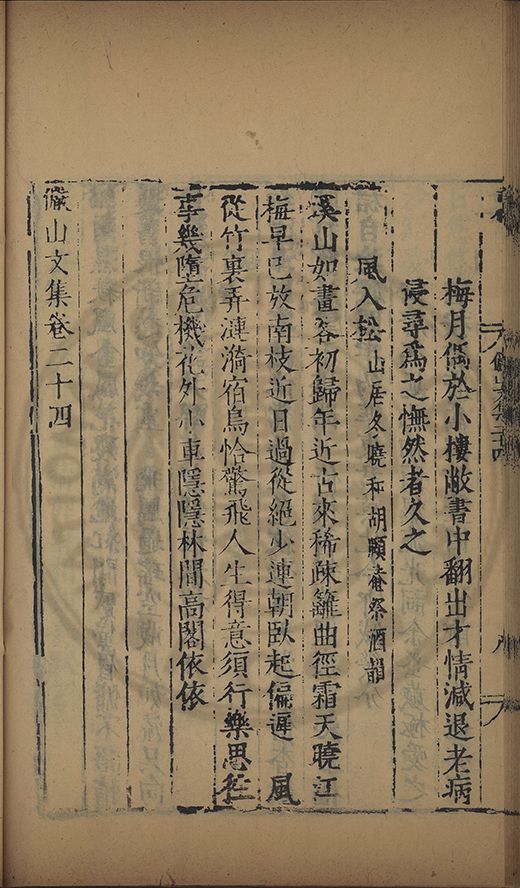 梅月偶於小樓敝書中翻出才情減退老病
侵尋為之憮然者久之
風入松山居冬曉和胡頤菴祭酒韻
溪山如畫客初歸年近古來稀疎籬曲徑霜天曉江
梅早已放南枝近日過從絕少連朝臥起偏遲 風
從竹裏弄漣漪宿鳥恰驚飛人生得意須行樂思往
事幾墮危機花外小車隱隱林間高閣依依
儼山文集卷二十四